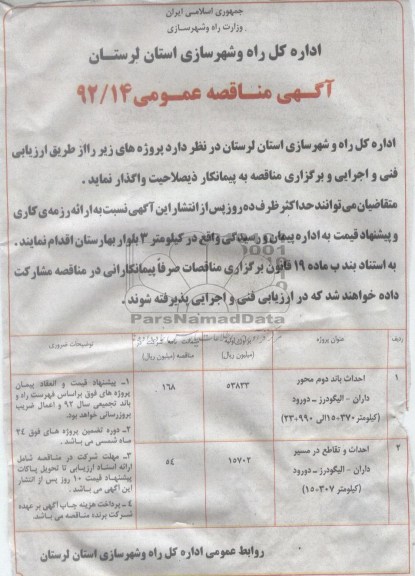 جمهوری اسلامی ایران
وزارت راه وشهرسازی
اداره کل راه وشهرسازی استان لرستان
آگهی مناقصه عمومی ۹۲/۱۴
اداره کل راه و شهرسازی استان لرستان در نظر دارد پروژه های زیر را از طریق ارزیابی
فنی و اجرایی و برگزاری مناقصه به پیمانکار ذیصلاحیت واگذار نماید .
متقاضیان می توانند حداکثر ظرف ده روز پس از انتشار این آگهی نسبت به ارائه رزمه ی کاری
و پیشنهاد قیمت به اداره پیمان و رسیدگی واقع در کیلومتر ۳ بلوار بهارستان اقدام نمایند .
به استناد بند ب ماده ۱۹ قانون برگزاری مناقصات صرفاً پیمانکارانی در مناقصه مشارکت
داده خواهند شد که در ارزیابی فنی و اجرایی پذیرفته شوند .
ParsNamadData
ردیف
عنوان پروژه
برآورد اولیه
(میلیون ریال)
مناقصه (میلیون ریال)
توضیحات ضروری
۱
احداث باند دوم محور
داران - الیگودرز - دورود
(کیلومتر ۳۷۰+۱۵الی ۹۹۰+۲۳)
۵۳۸۳۳
۱۶۸
۲
احداث و تقاطع در مسیر
داران - الیگودرز - دورود
(کیلومتر ۳۰۷+۱۵)
۱۵۷۰۲
۵۴
۱ـ پیشنهاد قیمت و انعقاد پیمان
پروژه های فوق براساس فهرست راه و
باند تجمیعی سال ۹۲ و اعمال ضریب
بروزرسانی خواهد بود.
۲ـ دوره تضمین پروژه های فوق ۲۴
ماه شمسی می باشد .
۳ـ مهلت شرکت در مناقصه شامل
ارائه اسناد ارزیابی تا تحویل پاکات
پیشنهاد قیمت ۱۰ روز پس از انتشار
این آگهی می باشد .
۴ـ پرداخت هزینه چاپ آگهی بر عهده
شرکت برنده مناقصه می باشد.
روابط عمومی اداره کل راه وشهرسازی استان لرستان